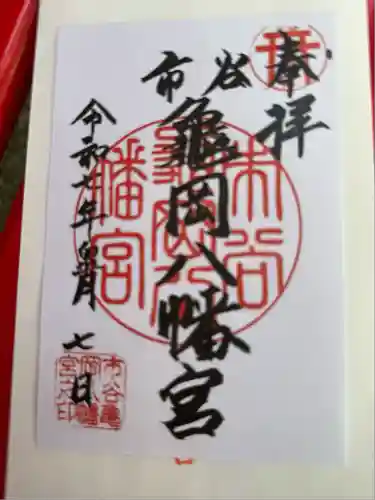 奉拝
市谷
亀岡八幡宮
令和七年 月 七日
市谷
亀岡八
幡宮
市谷亀
岡八幡
宮之印